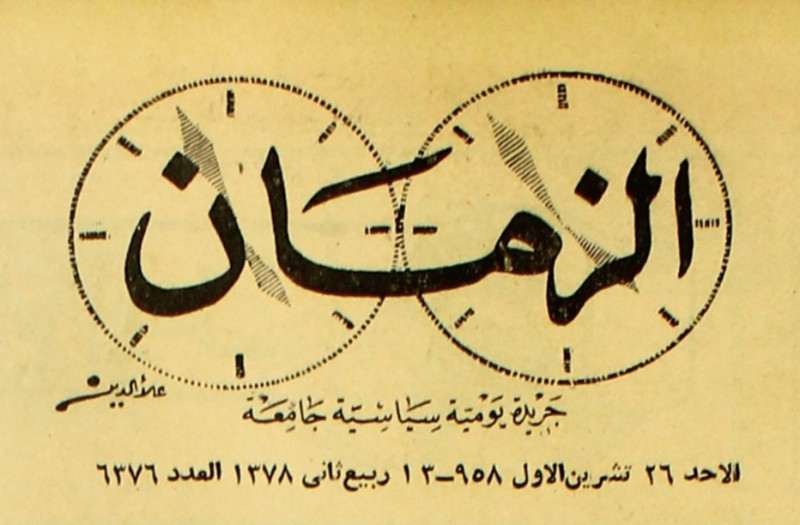 الزمان
علاء الدين
جريدة يومية سياسية جامعة
الاحد ٢٦ تشرين الاول ٩٥٨ــ١٣ ربيع ثانى ١٣٧٨ العدد ٦٣٧٦